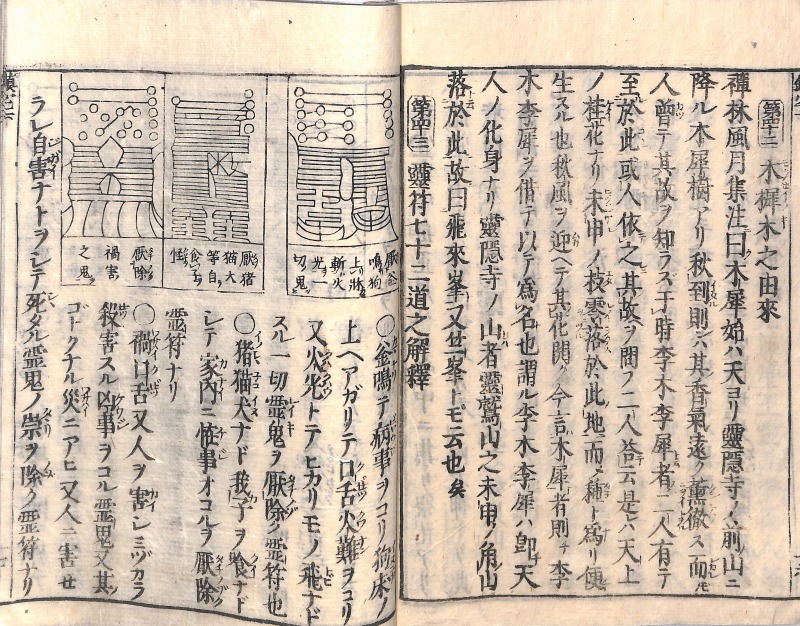 第四十二 木樨木之由來
禪林風月集注曰木犀始ハ天ヨリ靈隱寺ノ前山ニ
降ル木犀樹アリ秋到則ハ其香氣遠ク薫徹ス而モ
人曽テ其故ヲ知ラズ于時李木李犀者二人有テ
至於此或人依之其故ヲ問フ二人荅云是ハ天上
ノ桂花ナリ未申ノ枝零落於此地而種ト爲リ便
生スル也秋風ヲ迎ヘテ其花開ク今言木犀者則チ李
木李犀ヲ借テ以テ爲名也謂ル李木李犀ハ卽天
人ノ化身ナリ靈隱寺ノ山者靈鷲山之未申ノ角山
落於此故曰飛來峯又
峯トモ云也矣
第四十三 靈符七十二道之解釋
厭釜
鳴狗
上床
斬火
光一
切鬼
厭猪
猫犬
等自
食
怪
厭除
禍害
之鬼
〇釜鳴テ病事ヲコリ狗床ノ
上ヘアガリテ口舌火難ヲコリ
又火光トテヒカリモノ飛ナド
スル一切靈鬼ヲ厭除ク霊符也
〇猪猫犬ナド我子ヲ食ナド
シテ家内ニ怪事オコルヲ厭除
霊符ナリ
〇禍口舌又人ヲ害シミヅカラ
殺害スル凶事ヲコル霊鬼又其
ゴトクナル災ニアヒ又人ニ害セ
ラレ自害ナトヲシテ死タル霊鬼ノ祟ヲ除ク霊符ナリ